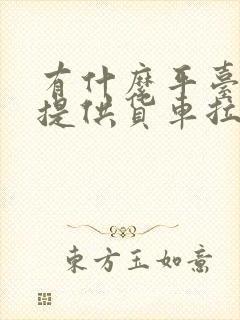 有什麼平臺
提供貨車拉
東方玉如意